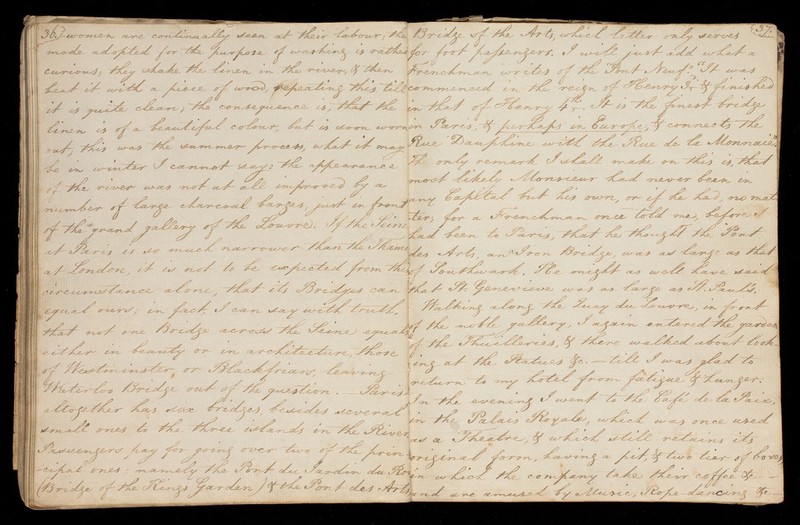 36
women are continually seen at their labour; the
mode adopted for the purpose of washing is rather
curious; they shake the linen in the river, & then
beat it with a piece of wood, repeating this till
it is quite clean; the consequence is, that the
linen is of a beautiful colour, but is soon worn
out, this was the summer process, what it may
be in winter I cannot say: the appearance
of the river was not at all improved by a
number of large charcoal barges, just in front
of the "grand gallery of the Louvre. If the Seine
at Paris is so much narrower than the Thames
at London, it is not to be expected from this
circumstance alone, that its Bridges can
equal ours; in fact, I can say with truth,
that not one Bridge across the Seine equals
either in beauty or in architecture, those
of Westminster, or Blackfriars, leaving
Waterloo Bridge out of the question. — Paris
altogether has six bridges, besides several
small ones to the three islands in the River
Passengers pay for going over two of the prin-
-cipal ones: namely the Pont du Jardin du Roi
(Bridge of the Kings Garden) & the Pont des Arts
37
Bridge of the Arts, which latter only serves
for foot passengers. I will just add what a
Frenchman writes of the "Pont Neuf." "It was
commenced in the reign of Henry 3rd & finished
in that of Henry 4th. It is the finest bridge
in Paris, & perhaps in Europe, & connects the
Rue Dauphine with the Rue de la Monnaie"
The only remark I shall make on this is, that
most likely Monsieur had never been in
any Capital but his own, or if he had, no mat-
ter; for a Frenchman once told me, before I
had been to Paris, that he thought the Pont
des Arts, an Iron Bridge, was as large as that
of Southwark. He might as well have said
that St. Genevieve was as large as St. Paul's.
Walking along the Quay du Louvre, in front
of the noble gallery, I again entered the garden
of the Thuilleries, & there walked about look-
ing at the Statues &c. — till I was glad to
return to my hotel from fatigue & hunger.
In the evening I went to the Café de la Paix,
in the Palais Royale, which was once used
as a Theatre, & which still retains its
original form, having a pit, & two tier of boxes,
in which the company take their coffee &c —
and are amused by Music, Rope-dancing &c —